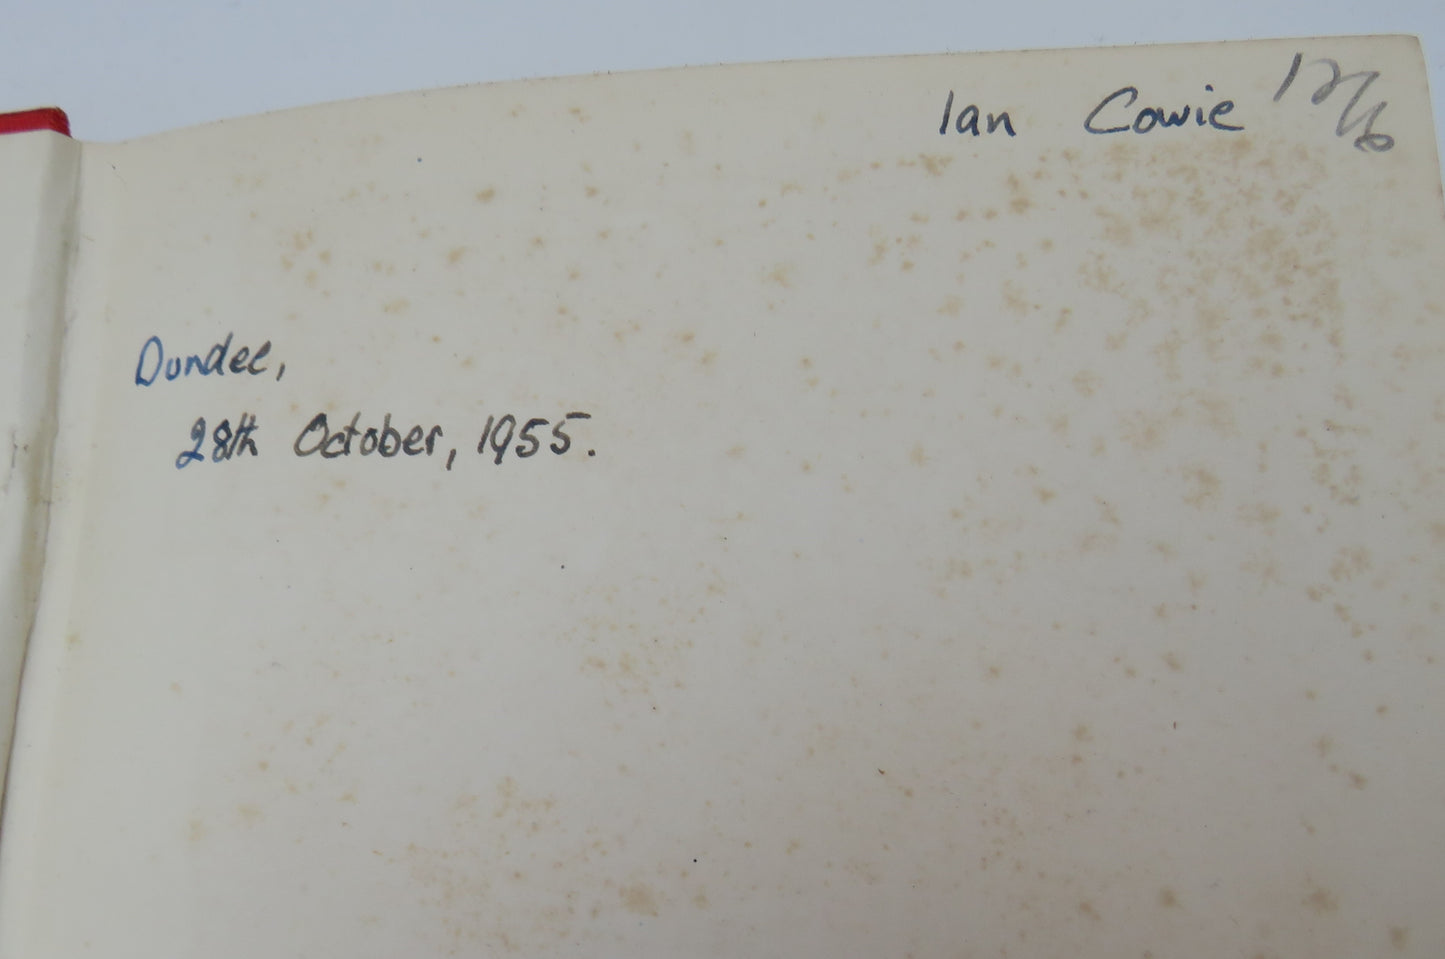 Ian Cowie 12/6
Dundee,
28th October, 1955.